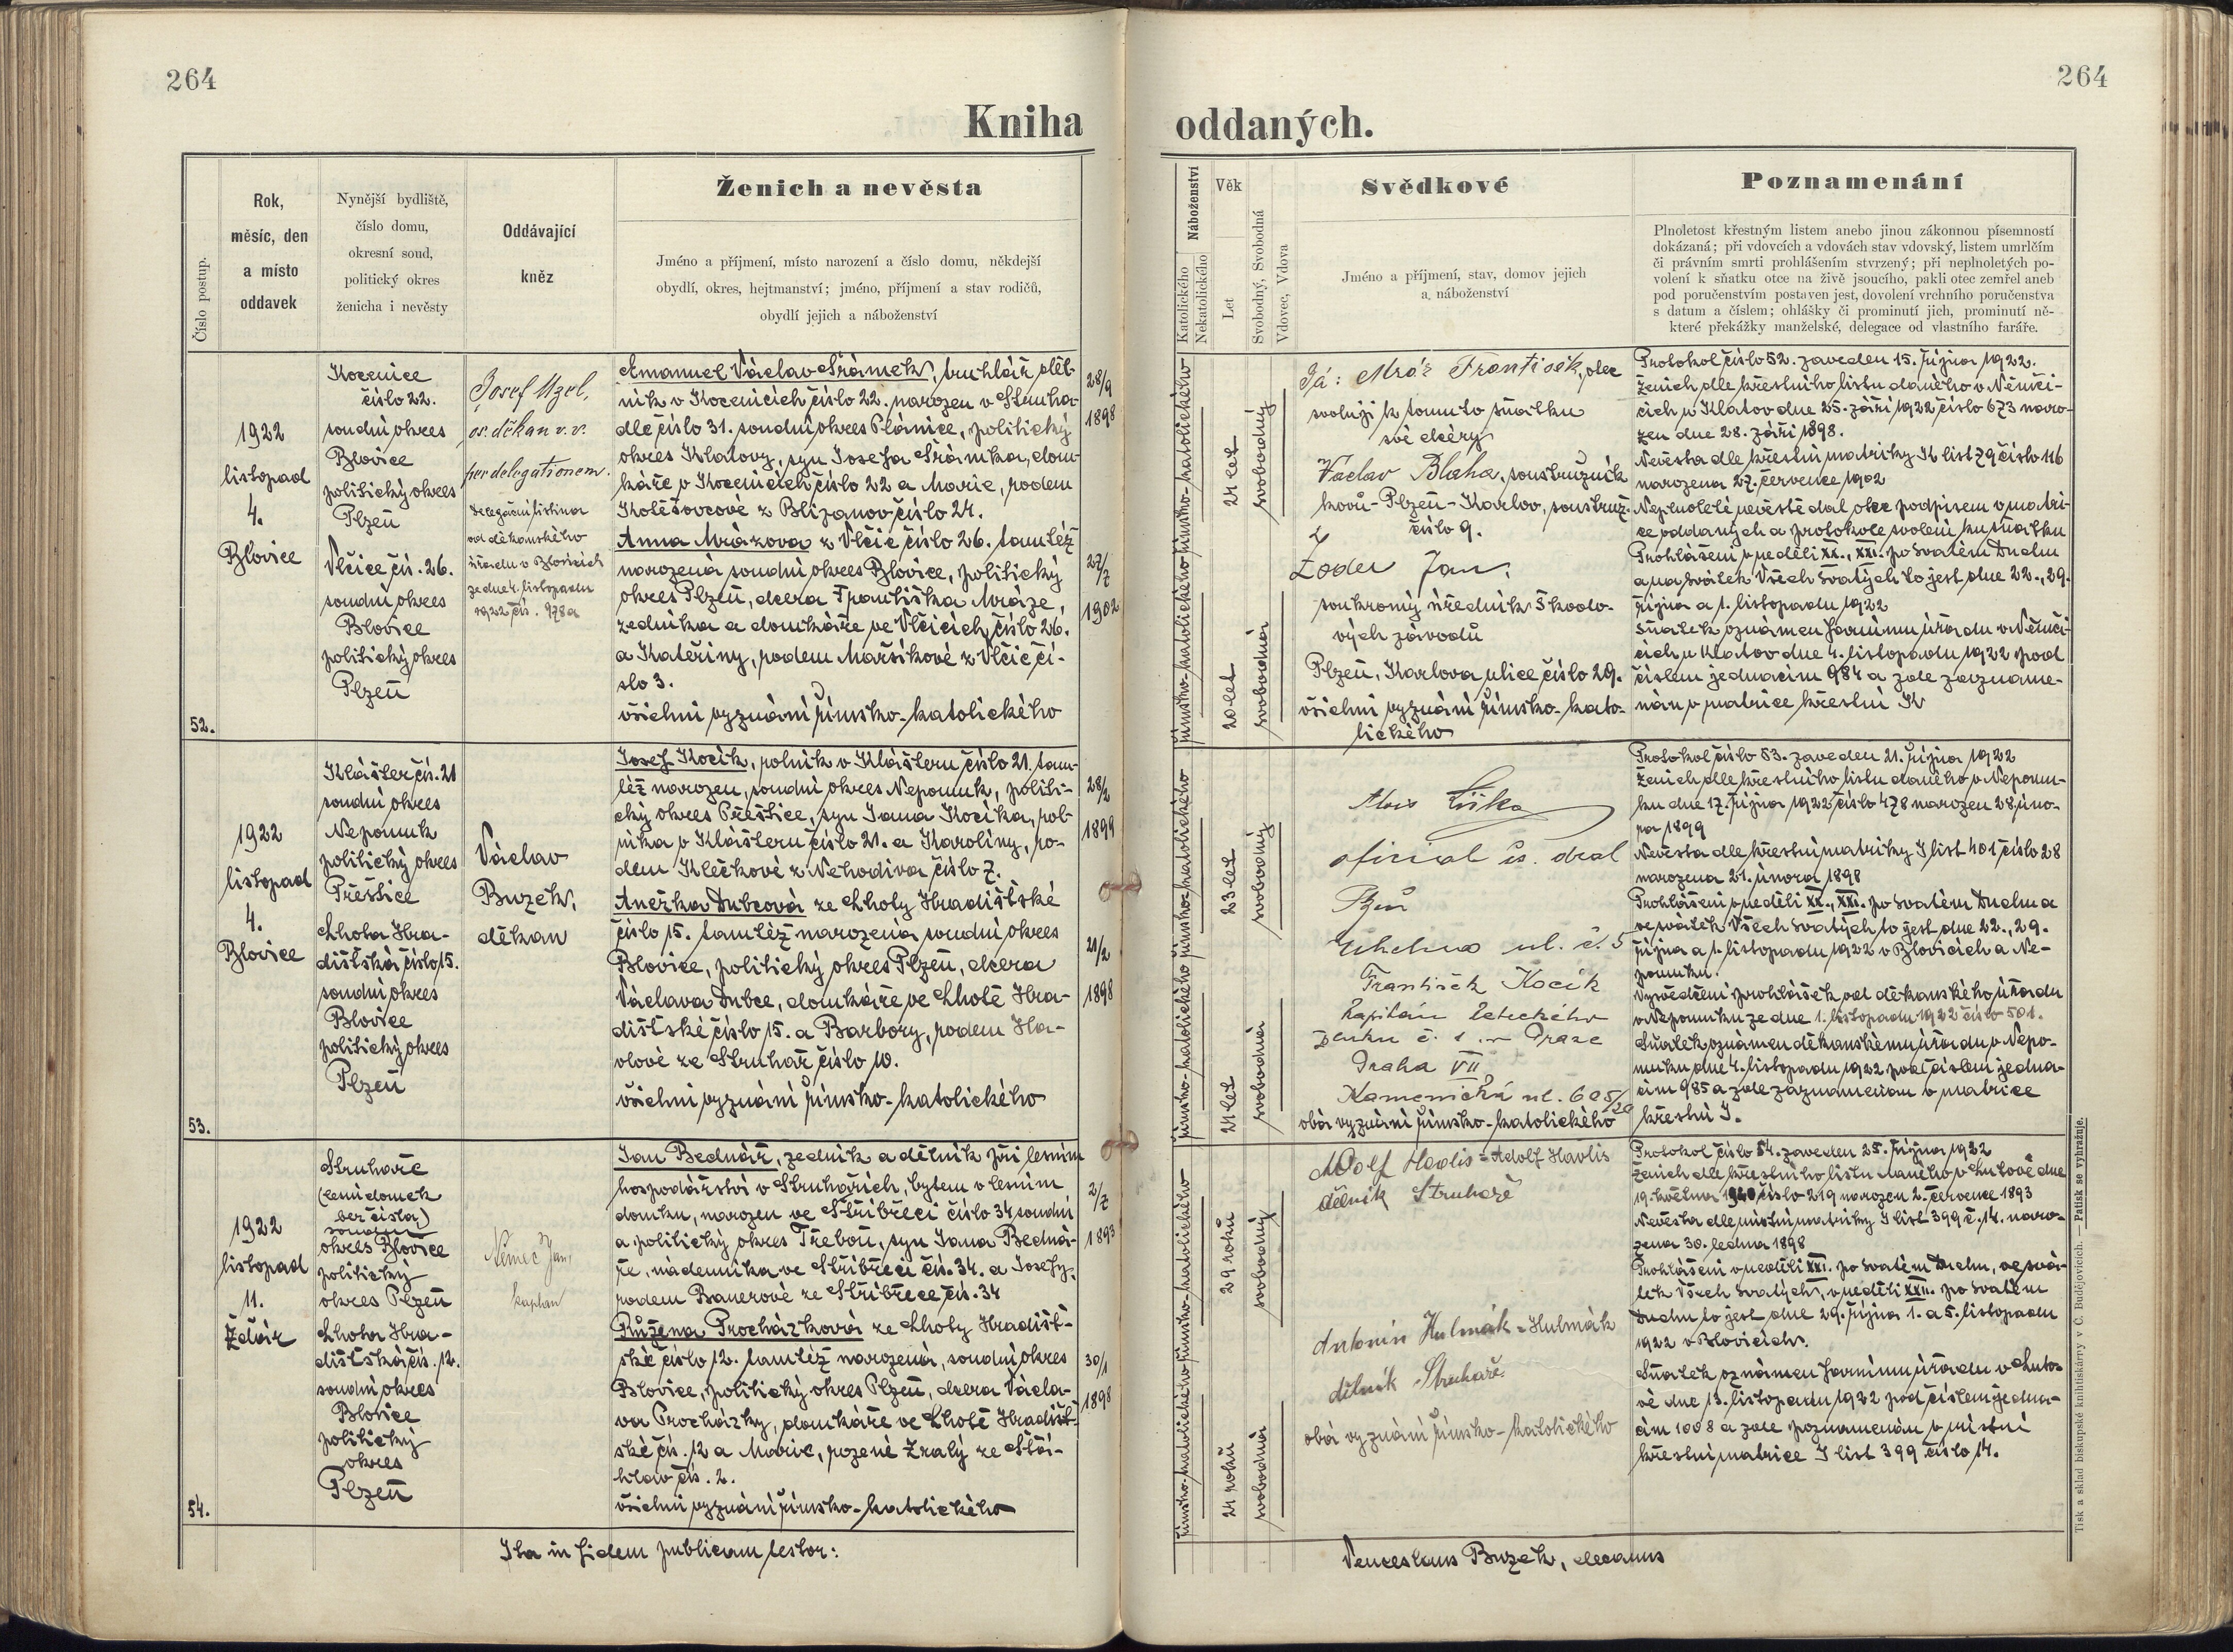 264
264
Kniha
oddaných.
Číslo postup.
Rok,
měsíc, den
a místo
oddavek
Nynější bydliště,
číslo domu,
okresní soud,
politický okres
ženicha i nevěsty
Oddávající
kněz
Ženich a nevěsta
Jméno a příjmení, místo narození a číslo domu, někdejší
obydlí, okres, hejtmanství; jméno, příjmení a stav rodičů,
obydlí jejich a náboženství
Náboženství
Katolického
Nekatolického
Věk
Let
Svobodný, Svobodná
Vdovec, Vdova
Svědkové
Jméno a příjmení, stav, domov jejich
a náboženství
Poznamenání
Plnoletost křestným listem anebo jinou zákonnou písemností
dokázaná; při vdovcích a vdovách stav vdovský, listem umrlčím
či právním smrti prohlášením stvrzený; při neplnoletých po-
volení k sňatku otce na živě jsoucího, pakli otec zemřel aneb
pod poručenstvím postaven jest, dovolení vrchního poručenstva
s datum a číslem; ohlášky či prominutí jich, prominutí ně-
které překážky manželské, delegace od vlastního faráře.
52.
1922
listopad
4.
Blovice
Kocenice
číslo 22.
soudní okres
Blovice
politický okres
Plzeň
Vlčice čís. 26.
soudní okres
Blovice
politický okres
Plzeň
Josef Uzel,
os. děkan v. v.
per delegationem.
Delegační listina
od děkanského
úřadu v Blovicích
ze dne 4. listopadu
1922 čís. 978a
Emanuel Václav Šrámek, truhlář děl-
ník v Kocenicích číslo 22. narozen v Struha-
dle číslo 31. soudní okres Plánice, politický
okres Klatovy, syn Josefa Šrámka, dom-
káře v Kocenicích číslo 22 a Marie, rodem
Kolěšovcové z Blížanov číslo 24.
Anna Mrázova z Vlčic číslo 26. tamtéž
narozená soudní okres Blovice, politický
okres Plzeň, dcera Františka Mráze,
zedníka a domkáře ve Vlčicích číslo 26.
a Kateřiny, rodem Maršíkové z Vlčic čí-
slo 3.
všichni vyznání římsko-katolického
28/9
1898
27/7
1902
římsko-katolického
24 let
svobodný
římsko-katolického
20 let
svobodná
Já: Mráz František, otec
svoluji k tomuto sňatku
své dcery
Václav Blaha, soustružník
kovů-Plzeň-Karlov, soustruž.
číslo 9.
Žoder Jan,
soukromý úředník Škodo-
vých závodů
Plzeň, Karlova ulice číslo 29.
všichni vyznání římsko-kato-
lického
Protokol číslo 52. zaveden 15. října 1922.
Ženich dle křestního listu daného v Němči-
cích u Klatov dne 25. září 1922 číslo 673 naro-
zen dne 28. září 1898.
Nevěsta dle křestní matriky K list 79 číslo 116
narozena 27. července 1902
Neplnoleté nevěstě dal otec podpisem v matri-
ce oddaných a protokole svolení ku sňatku
Prohlášeni v neděli XX., XXI. po Svatém Duchu
a na svátek Všech svatých to jest dne 22., 29.
října a 1. listopadu 1922
Sňatek oznámen farnímu úřadu v Němči-
cích u Klatov dne 4. listopadu 1922 pod
číslem jednacím 984 a zde zazname-
nán v matrice křestní K
53.
1922
listopad
4.
Blovice
Klášter čís. 21
soudní okres
Nepomuk
politický okres
Přeštice
Lhota Hra-
dištská číslo 15.
soudní okres
Blovice
politický okres
Plzeň
Václav
Buzek,
děkan
Josef Kocík, rolník v Klášteru číslo 21. tam-
též narozen, soudní okres Nepomuk, politi-
cký okres Přeštice, syn Jana Kocíka, rol-
níka v Klášteru číslo 21. a Karoliny, ro-
dem Klečkové z Nehodiva číslo 7.
Anežka Dubcová ze Lhoty Hradištské
číslo 15. tamtéž narozená soudní okres
Blovice, politický okres Plzeň, dcera
Václava Dubce, domkáře ve Lhotě Hra-
dištské číslo 15. a Barbory, rodem Ha-
vlové ze Struhař číslo 10.
všichni vyznání římsko-katolického
28/2
1899
21/2
1898
římsko-katolického
23 let
svobodný
římsko-katolického
24 let
svobodná
Alois
oficiál čs. drah
Plzeň
Úhelná ul. č. 5
František Kocík
kapitán leteckého
pluku č. 1 v Praze
Praha VII
Kamenická ul. 605/20
oba vyznání římsko-katolického
Protokol číslo 53. zaveden 21. října 1922
Ženich dle křestního listu daného v Nepomu-
ku dne 17. října 1922 číslo 478 narozen 28. úno-
ra 1899
Nevěsta dle křestní matriky J list 401 číslo 28
narozena 21. února 1898
Prohlášeni v neděli XX., XXI. po Svatém Duchu a
ve svátek Všech svatých, to jest dne 22., 29.
října a 1. listopadu 1922 v Blovicích a Ne-
pomuku.
Vysvědčení prohlášek od děkanského úřadu
v Nepomuku ze dne 1. listopadu 1922 číslo 501.
Sňatek oznámen děkanskému úřadu v Nepo-
muku dne 4. listopadu 1922 pod číslem jedna-
cím 985 a zde zaznamenán v matrice
křestní J.
54.
1922
listopad
11.
Ždár
Struhaře
(lesní domek
bez čísla)
soudní
okres Blovice
politický
okres Plzeň
Lhota Hra-
dištská čís. 12.
soudní okres
Blovice
politický
okres
Plzeň
Němec Jan,
kaplan
Jan Bednář, zedník a dělník při lesním
hospodářství v Struhařích, bytem v lesním
domku, narozen ve Stříbřeci číslo 34 soudní
a politický okres Třeboň, syn Jana Bedná-
ře, nádenníka ve Stříbřeci čís. 34. a Josefy,
rodem Bauerové ze Stříbřece čís. 34
Růžena Procházková ze Lhoty Hradišt-
ské číslo 12. tamtéž narozená, soudní okres
Blovice, politický okres Plzeň, dcera Václa-
va Procházky, domkáře ve Lhotě Hradišt-
ské čís. 12 a Marie, rozené Zralý ze Šťá-
hlav čís. 2.
všichni vyznání římsko-katolického
2/7
1893
30/1
1898
římsko-katolického
29 roků
svobodný
římsko-katolického
24 roků
svobodná
Adolf Havlis = Adolf Havlis
dělník Struhaře
Antonín Hulmák = Hulmák
dělník Struhaře.
oba vyznání římsko-katolického
Protokol číslo 54. zaveden 25. října 1922
Ženich dle křestního listu daného v Lutové dne
19. května 1920 číslo 219 narozen 2. července 1893
Nevěsta dle místní matriky J list 399 č. 14. naro-
zena 30. ledna 1898
Prohlášeni v neděli XXI. po Svatém Duchu, ve svá-
tek Všech Svatých, v neděli XXII. po Svatém
Duchu to jest dne 29. října 1. a 5. listopadu
1922 v Blovicích.
Sňatek oznámen farnímu úřadu v Luto-
vé dne 13. listopadu 1922 pod číslem jedna-
cím 1008 a zde poznamenán v místní
křestní matrice J list 399 číslo 14.
Ita in fidem publicam testor:
Venceslaus Buzek, decanus
Tisk a sklad biskupské knihtiskárny v Č. Budějovicích. — Patisk se vyhražuje.